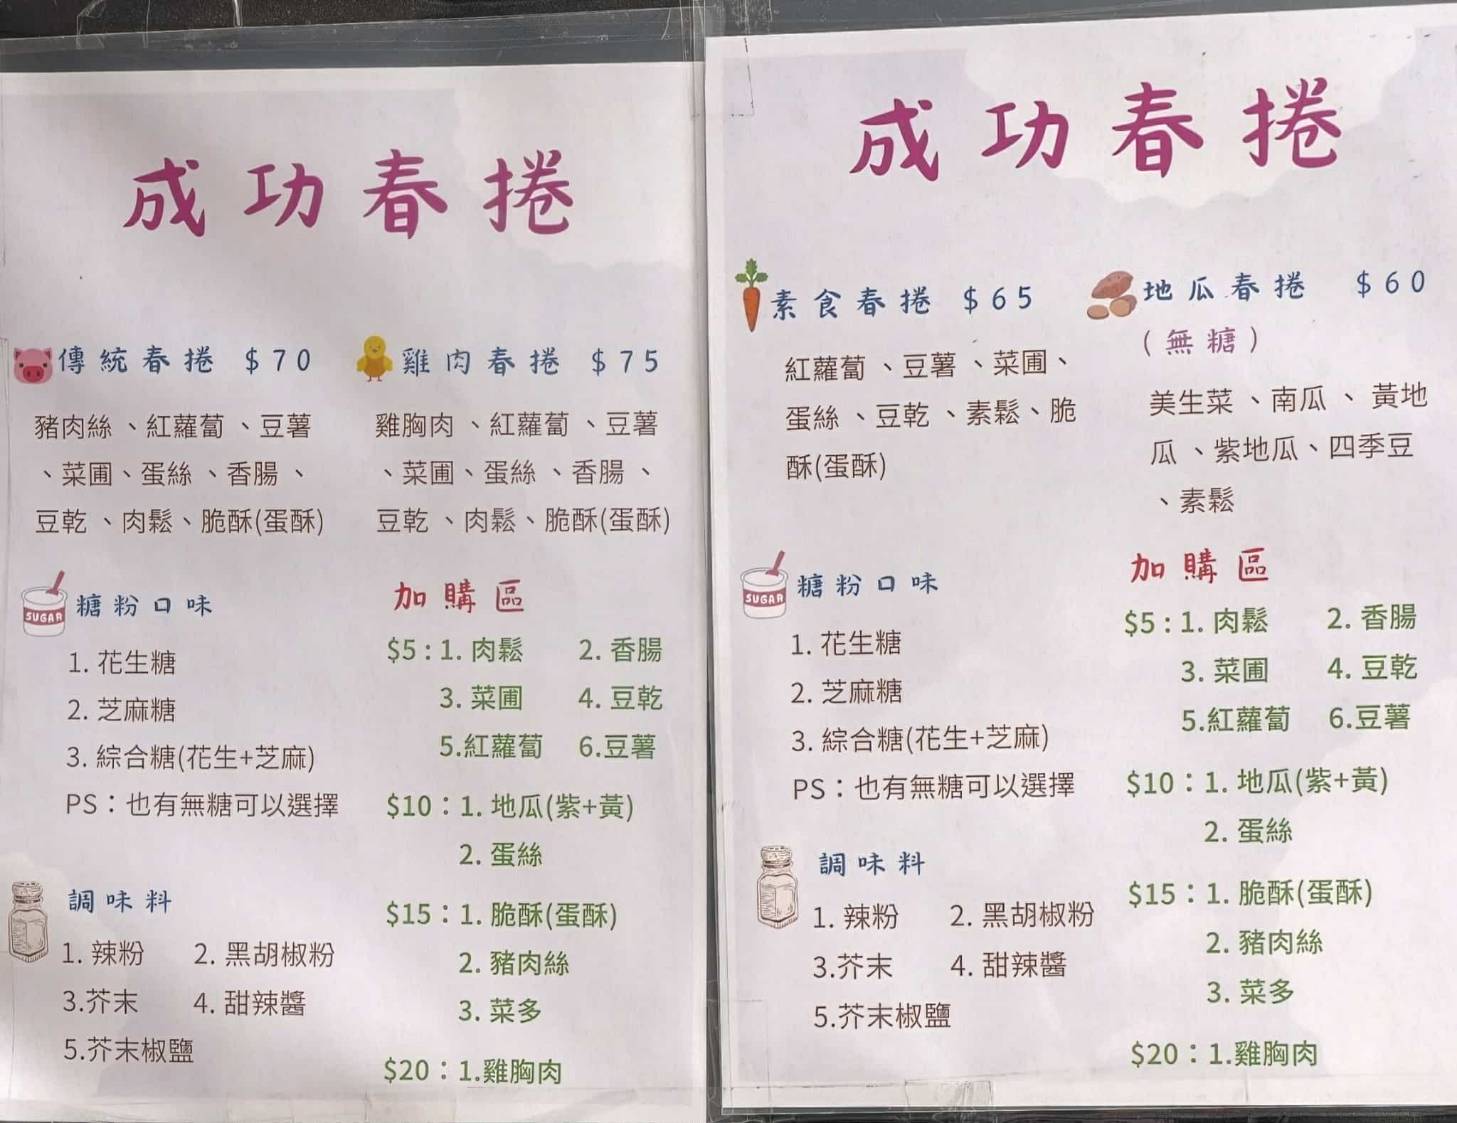 成功春捲
傳統春捲 $70
豬肉絲、紅蘿蔔、豆薯
、菜圃、蛋絲、香腸、
豆乾、肉鬆、脆酥(蛋酥)
雞肉春捲 $75
雞胸肉、紅蘿蔔、豆薯
、菜圃、蛋絲、香腸、
豆乾、肉鬆、脆酥(蛋酥)
SUGAR
糖粉口味
1. 花生糖
2. 芝麻糖
3. 綜合糖(花生+芝麻)
PS：也有無糖可以選擇
調味料
1. 辣粉 2. 黑胡椒粉
3.芥末 4. 甜辣醬
5.芥末椒鹽
加購區
$5 : 1. 肉鬆 2. 香腸
3. 菜圃 4. 豆乾
5.紅蘿蔔 6.豆薯
$10：1. 地瓜(紫+黃)
2. 蛋絲
$15：1. 脆酥(蛋酥)
2. 豬肉絲
3. 菜多
$20：1.雞胸肉
成功春捲
素食春捲 $65
紅蘿蔔、豆薯、菜圃、
蛋絲、豆乾、素鬆、脆
酥(蛋酥)
地瓜春捲 $60
(無糖)
美生菜、南瓜、黃地
瓜、紫地瓜、四季豆
、素鬆
SUGAR
糖粉口味
1. 花生糖
2. 芝麻糖
3. 綜合糖(花生+芝麻)
PS：也有無糖可以選擇
調味料
1. 辣粉 2. 黑胡椒粉
3.芥末 4. 甜辣醬
5.芥末椒鹽
加購區
$5 : 1. 肉鬆 2. 香腸
3. 菜圃 4. 豆乾
5.紅蘿蔔 6.豆薯
$10：1. 地瓜(紫+黃)
2. 蛋絲
$15：1. 脆酥(蛋酥)
2. 豬肉絲
3. 菜多
$20：1.雞胸肉